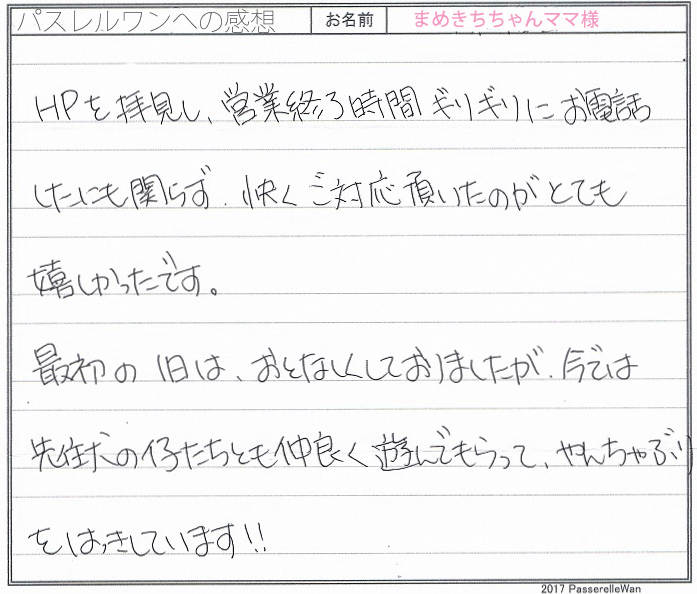 パスレルワンへの感想 お名前 まめきちちゃんママ様
HPを拝見し、営業終了時間ギリギリにお電話
したにも関らず、快くご対応頂いたのがとても
嬉しかったです。
最初の1日は、おとなしくしておりましたが、今では
先住犬の仔たちとも仲良く遊んでもらって、やんちゃぶり
をはっきしています!!
2017 PasserelleWan